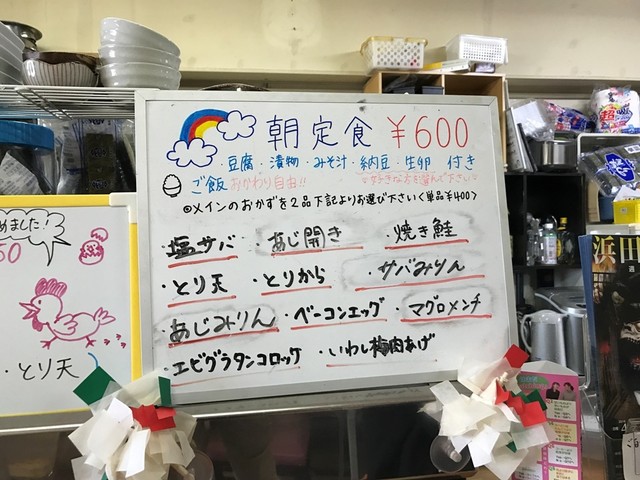 朝定食 ¥600
・豆腐・漬物・みそ汁・納豆・生卵 付き
ご飯おかわり自由!! ♡好きな方を選んで下さい♡
◎メインのおかずを2品下記よりお選び下さいく単品¥400>
・塩サバ ・あじ開き ・焼き鮭
・とり天 ・とりから ・サバみりん
・あじみりん ・ベーコンエッグ ・マグロメンチ
・エビグラタンコロッケ ・いわし梅肉あげ
めました!
50
・とり天
超
浜田